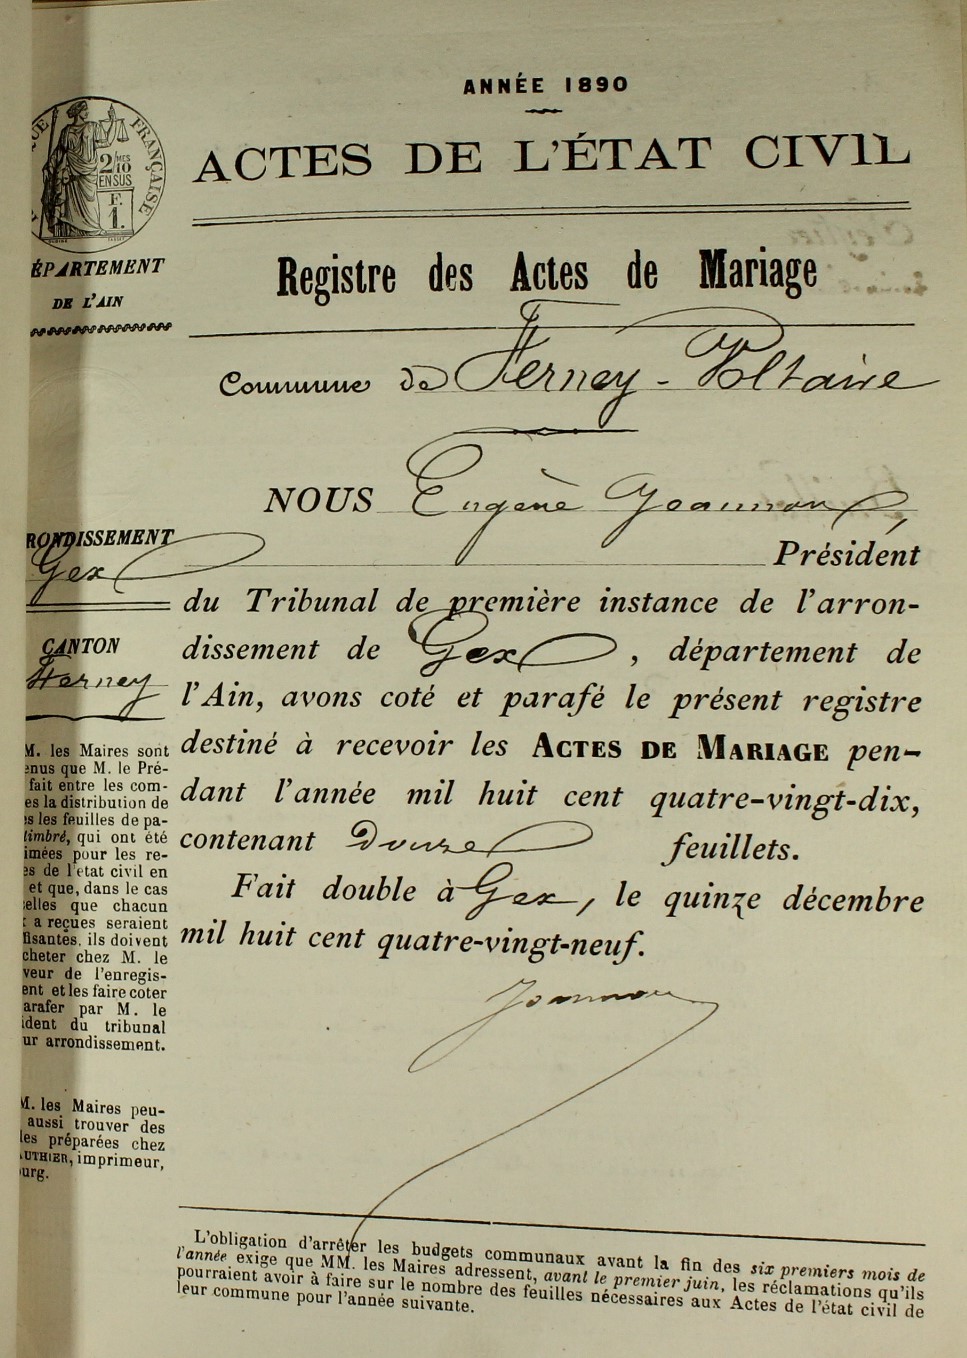 ANNÉE 1890
ACTES DE L'ÉTAT CIVIL
FRANÇAISE
2/MES
10
EN SUS
F.
1.
ÉPARTEMENT
DE L'AIN
Registre des Actes de Mariage
Commune de Ferney-Voltaire
NOUS Eugène
RONDISSEMENT
Gex
Président
du Tribunal de première instance de l'arron-
dissement de Gex, département de
l'Ain, avons coté et parafé le présent registre
destiné à recevoir les ACTES DE MARIAGE pen-
dant l'année mil huit cent quatre-vingt-dix,
contenant Douze feuillets.
Fait double à Gex, le quinze décembre
mil huit cent quatre-vingt-neuf.
CANTON
Ferney
M. les Maires sont
enus que M. le Pré-
fait entre les com-
es la distribution de
s les feuilles de pa-
timbré, qui ont été
imées pour les re-
es de l'état civil en
et que, dans le cas
elles que chacun
t a reçues seraient
fisantes, ils doivent
cheter chez M. le
veur de l'enregis-
ent et les faire coter
arafer par M. le
ident du tribunal
ur arrondissement.
M. les Maires peu-
aussi trouver des
les préparées chez
AUTHIER, imprimeur,
urg.
L'obligation d'arrêter les budgets communaux avant la fin des six premiers mois de
l'année exige que MM. les Maires adressent, avant le premier juin, les réclamations qu'ils
pourraient avoir à faire sur le nombre des feuilles nécessaires aux Actes de l'état civil de
leur commune pour l'année suivante.